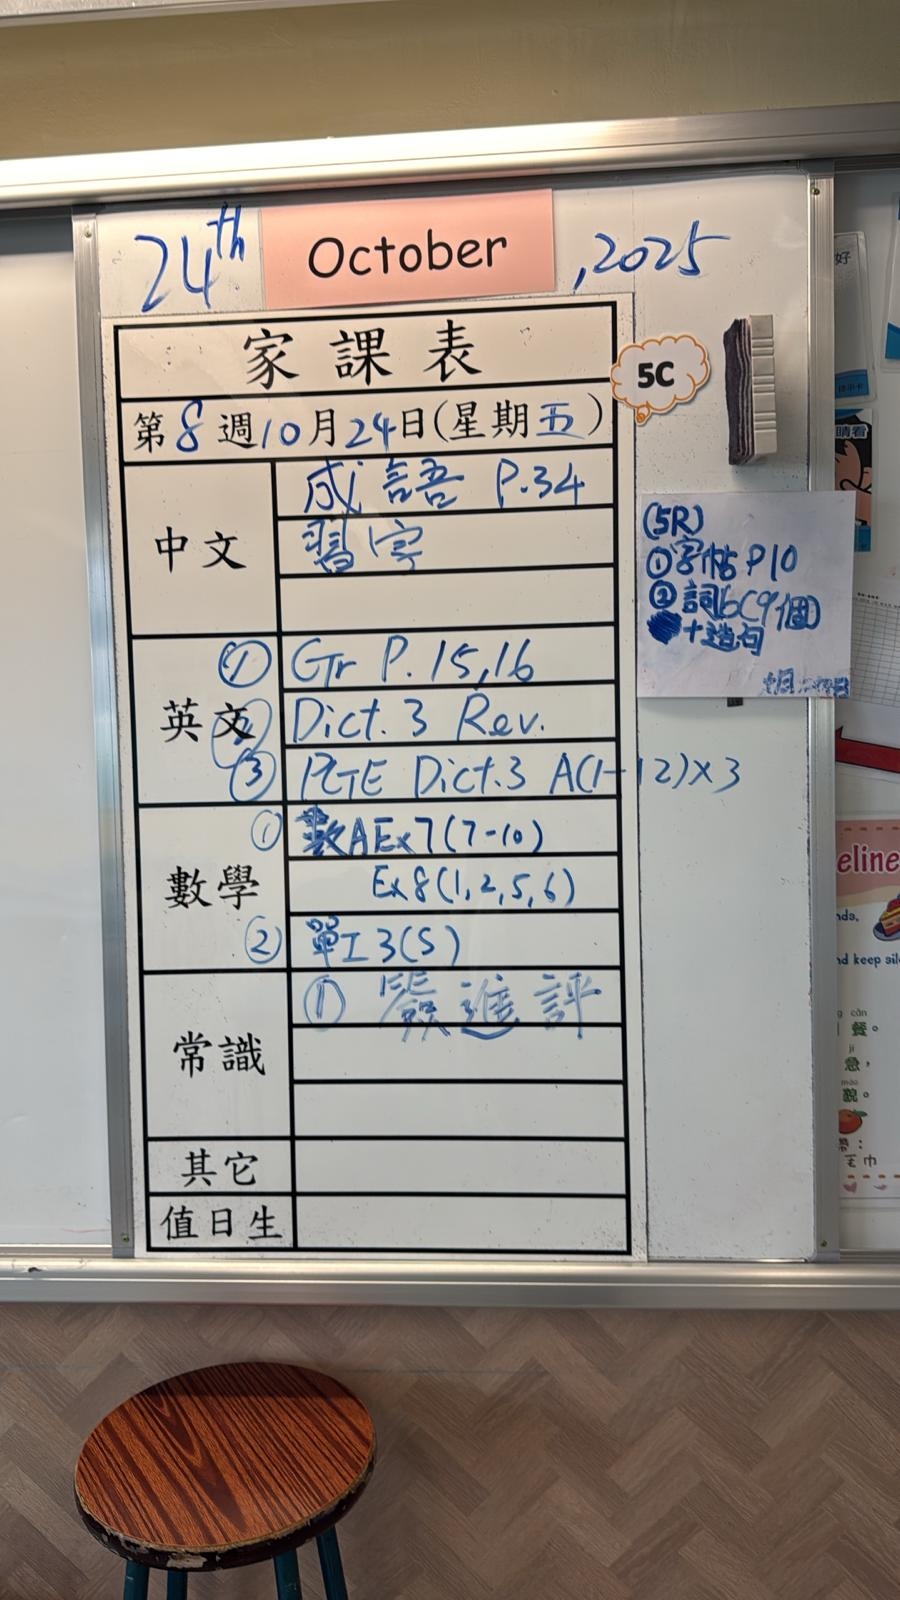 24th October, 2025
家課表
5C
第8週10月24日(星期五)
中文
成語 P.34
習字
英文
① Gr P. 15,16
② Dict. 3 Rev.
③ PGE Dict.3 A(1-12)×3
數學
① 數AEx7(7-10)
Ex8(1,2,5,6)
② 單工3(S)
常識
① 簽進評
其它
值日生
(5R)
①字帖P10
②詞6(9個)
+造句
好
睛看
eline
nds,
nd keep sil
餐。
急,
貌。
毛巾